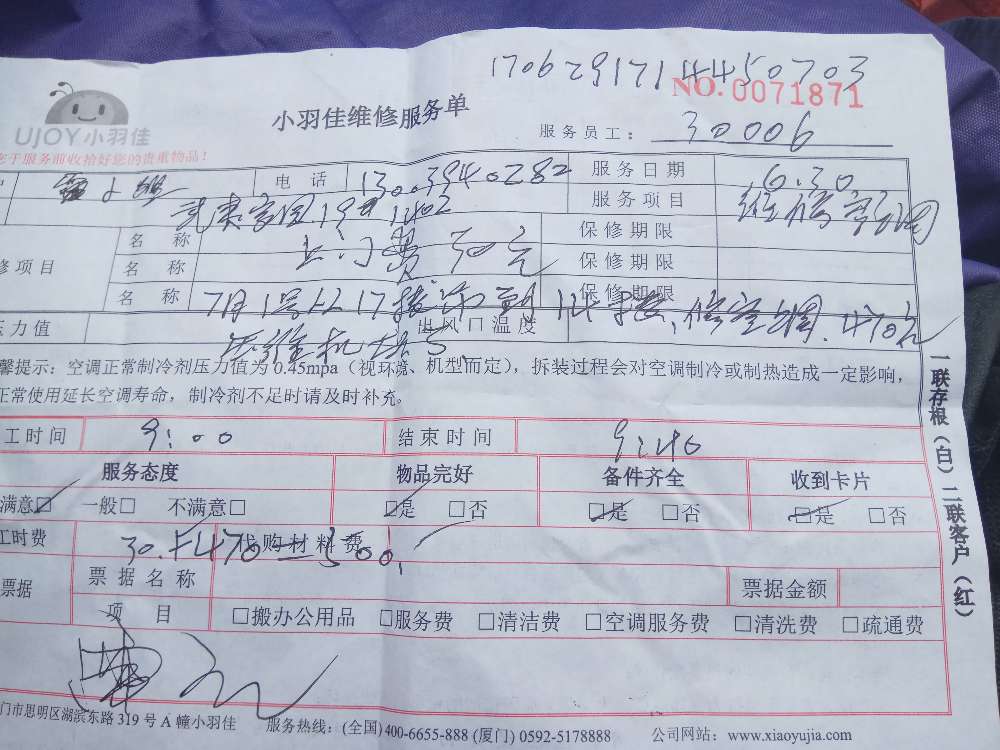 17062917144450703
NO. 0071871
UJOY小羽佳
小羽佳维修服务单
服务员工： 30006
于服务前收拾好您的贵重物品！
电 话 13003940282 服务日期 6.30
服务项目 维修空调
名 称 上门费30元 保修期限
修项目 名 称 保修期限
名 称 7月1号 保修期限
压力值 出风口温度 修空调. 470元
馨提示：空调正常制冷剂压力值为 0.45mpa（视环境、机型而定），拆装过程会对空调制冷或制热造成一定影响，
正常使用延长空调寿命，制冷剂不足时请及时补充。
工时间 9:00 结束时间 9:40
服务态度 物品完好 备件齐全 收到卡片
满意☑ 一般□ 不满意□ ☑是 □否 ☑是 □否 ☑是 □否
工时费 代购材料费
30.+470=500.
票据 票据名称 票据金额
项 目 □搬办公用品 □服务费 □清洁费 □空调服务费 □清洗费 □疏通费
一联存根（白）二联客户（红）
门市思明区湖滨东路 319 号 A 幢小羽佳 服务热线：(全国)400-6655-888 (厦门) 0592-5178888 公司网站：www.xiaoyujia.com